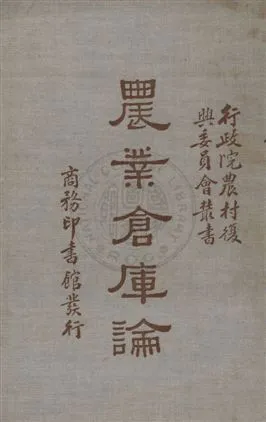 行政院農村復
興委員會叢書
農業倉庫論
商務印書館發行